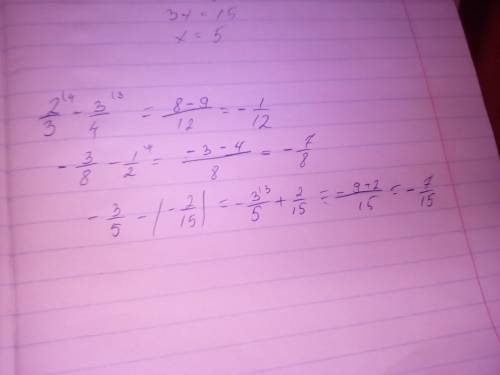 3x = 15
x = 5
2/3 ⁽⁴ - 3/4 ⁽³ = (8-9)/12 = - 1/12
- 3/8 - 1/2 ⁽⁴ = (-3-4)/8 = - 7/8
- 3/5 - |- 2/15| = - 3/5 ⁽³ + 2/15 = (-9+2)/15 = - 7/15